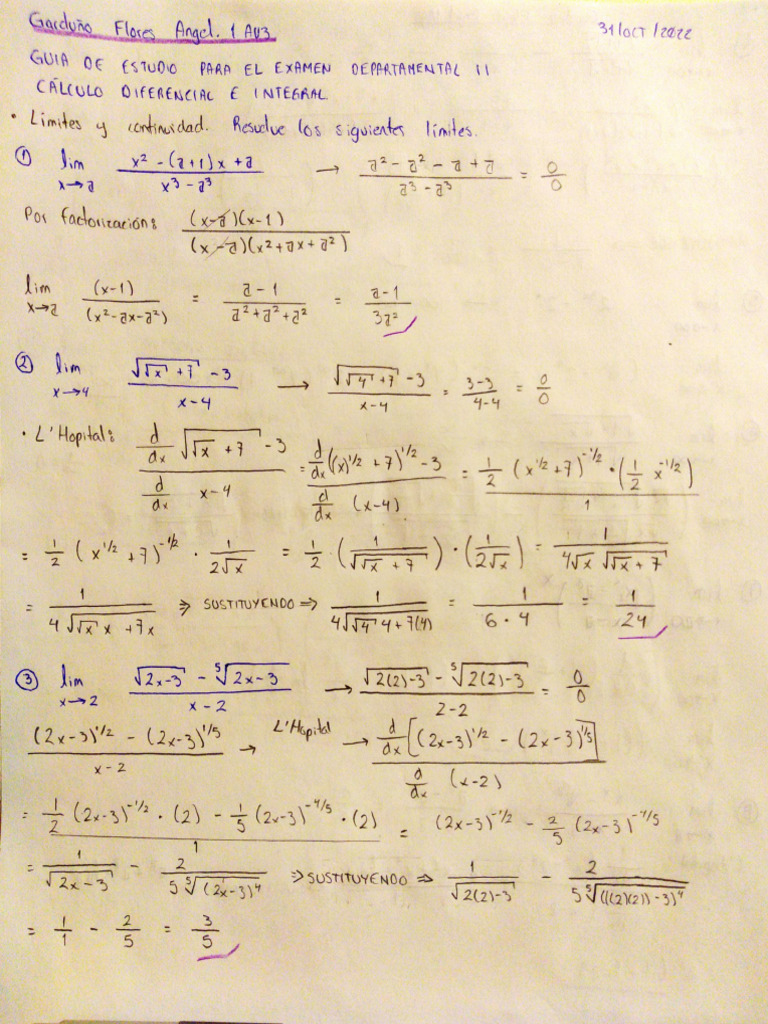 Garduño Flores Angel. 1 AV3 31/OCT/2022
GUIA DE ESTUDIO PARA EL EXAMEN DEPARTAMENTAL II
CÁLCULO DIFERENCIAL E INTEGRAL.
• Límites y continuidad. Resuelve los siguientes límites.
① lim x→a (x² - (a+1)x + a)/(x³ - a³) → (a² - a² - a + a)/(a³ - a³) = 0/0
Por factorización: ((x-a)(x-1))/((x-a)(x² + ax + a²))
lim x→a (x-1)/(x² - ax - a²) = (a-1)/(a² + a² + a²) = (a-1)/(3a²)
② lim x→4 (√(√x + 7) - 3)/(x-4) → (√(√4 + 7) - 3)/(x-4) = (3-3)/(4-4) = 0/0
• L'Hopital: (d/dx √(√x + 7) - 3)/(d/dx x-4) = (d/dx ((x)^1/2 + 7)^1/2 - 3)/(d/dx (x-4)) = (1/2 (x^1/2 + 7)^-1/2 • (1/2 x^-1/2))/1
= 1/2 (x^1/2 + 7)^-1/2 • 1/(2√x) = 1/2 • (1/√(√x + 7)) • (1/(2√x)) = 1/(4√x √(√x + 7))
= 1/(4√(√x x + 7x)) ⇒ SUSTITUYENDO ⇒ 1/(4√(√4 4 + 7(4))) = 1/(6 • 4) = 1/24
③ lim x→2 (√(2x-3) - ⁵√(2x-3))/(x-2) → (√(2(2)-3) - ⁵√(2(2)-3))/(2-2) = 0/0
((2x-3)^1/2 - (2x-3)^1/5)/(x-2) → L'Hopital → (d/dx [(2x-3)^1/2 - (2x-3)^1/5])/(d/dx (x-2))
= (1/2 (2x-3)^-1/2 • (2) - 1/5 (2x-3)^-4/5 • (2))/1 = (2x-3)^-1/2 - 2/5 (2x-3)^-4/5
= 1/√(2x-3) - 2/(5 ⁵√((2x-3)⁴)) ⇒ SUSTITUYENDO ⇒ 1/√(2(2)-3) - 2/(5 ⁵√(((2)(2))-3)⁴)
= 1/1 - 2/5 = 3/5